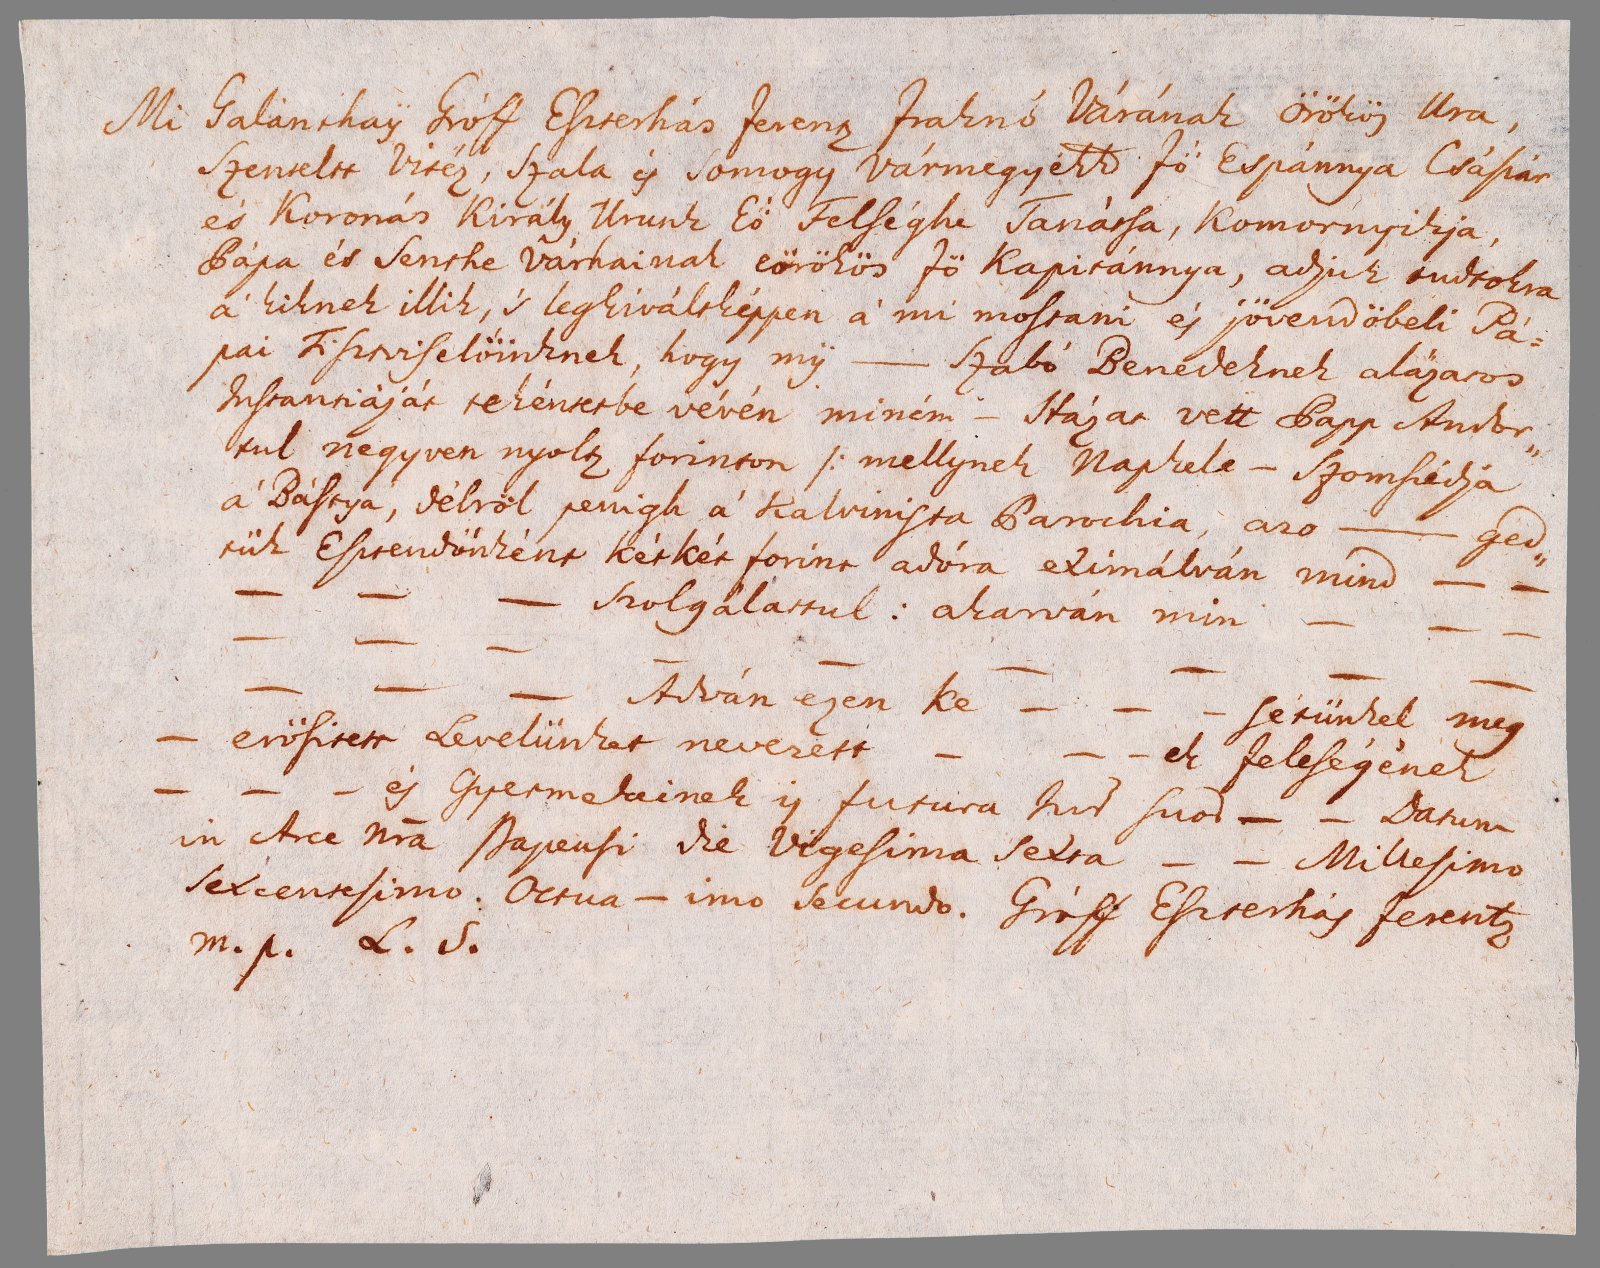 Mi Galánthaÿ Gróff Eszterhás Ferenz Fraknó Várának Örökös Ura,
Szentelt Vitéz, Szala és Somogy Vármegyék Fö Espánnya Császár
és Koronás Király Urunk Eö Felséghe Tanátsa, Komornyikja,
Pápa és Senthe Várhainak eörökös Fö Kapitánnya, adjuk tudtokra
á kiknek illik, 's legkiváltképpen á mi mostani és jövendöbeli Pá=
pai Tisztviselöinknek, hogy mÿ — Szabó Benedeknek alázatos
Instantiáját tekéntetbe vévén miném – Házat vett Papp Andor"
tul negyven nyoltz forinton /: mellynek Napkele – Szomszédja
á Bástya, délröl penigh á Kalvinista Parochia, azo — ged"
tük Esztendönként két két forint adóra eximálván mind — —
— — — szolgálattul : akarván min — — —
— — — — — — — — —
— — — Adván ezen ke – – – sétünkel meg
– erösitett Levelünket nevezett – – – ek Feleségének
– – – és Gyermekeinek is futura suos – – Datum
in Arce Nrã Papensi die Vigesima Sexta – – Millesimo
Sexcentesimo. Octua – imo Secundo. Gróff Eszterhás Ferentz
m. p. L. S.